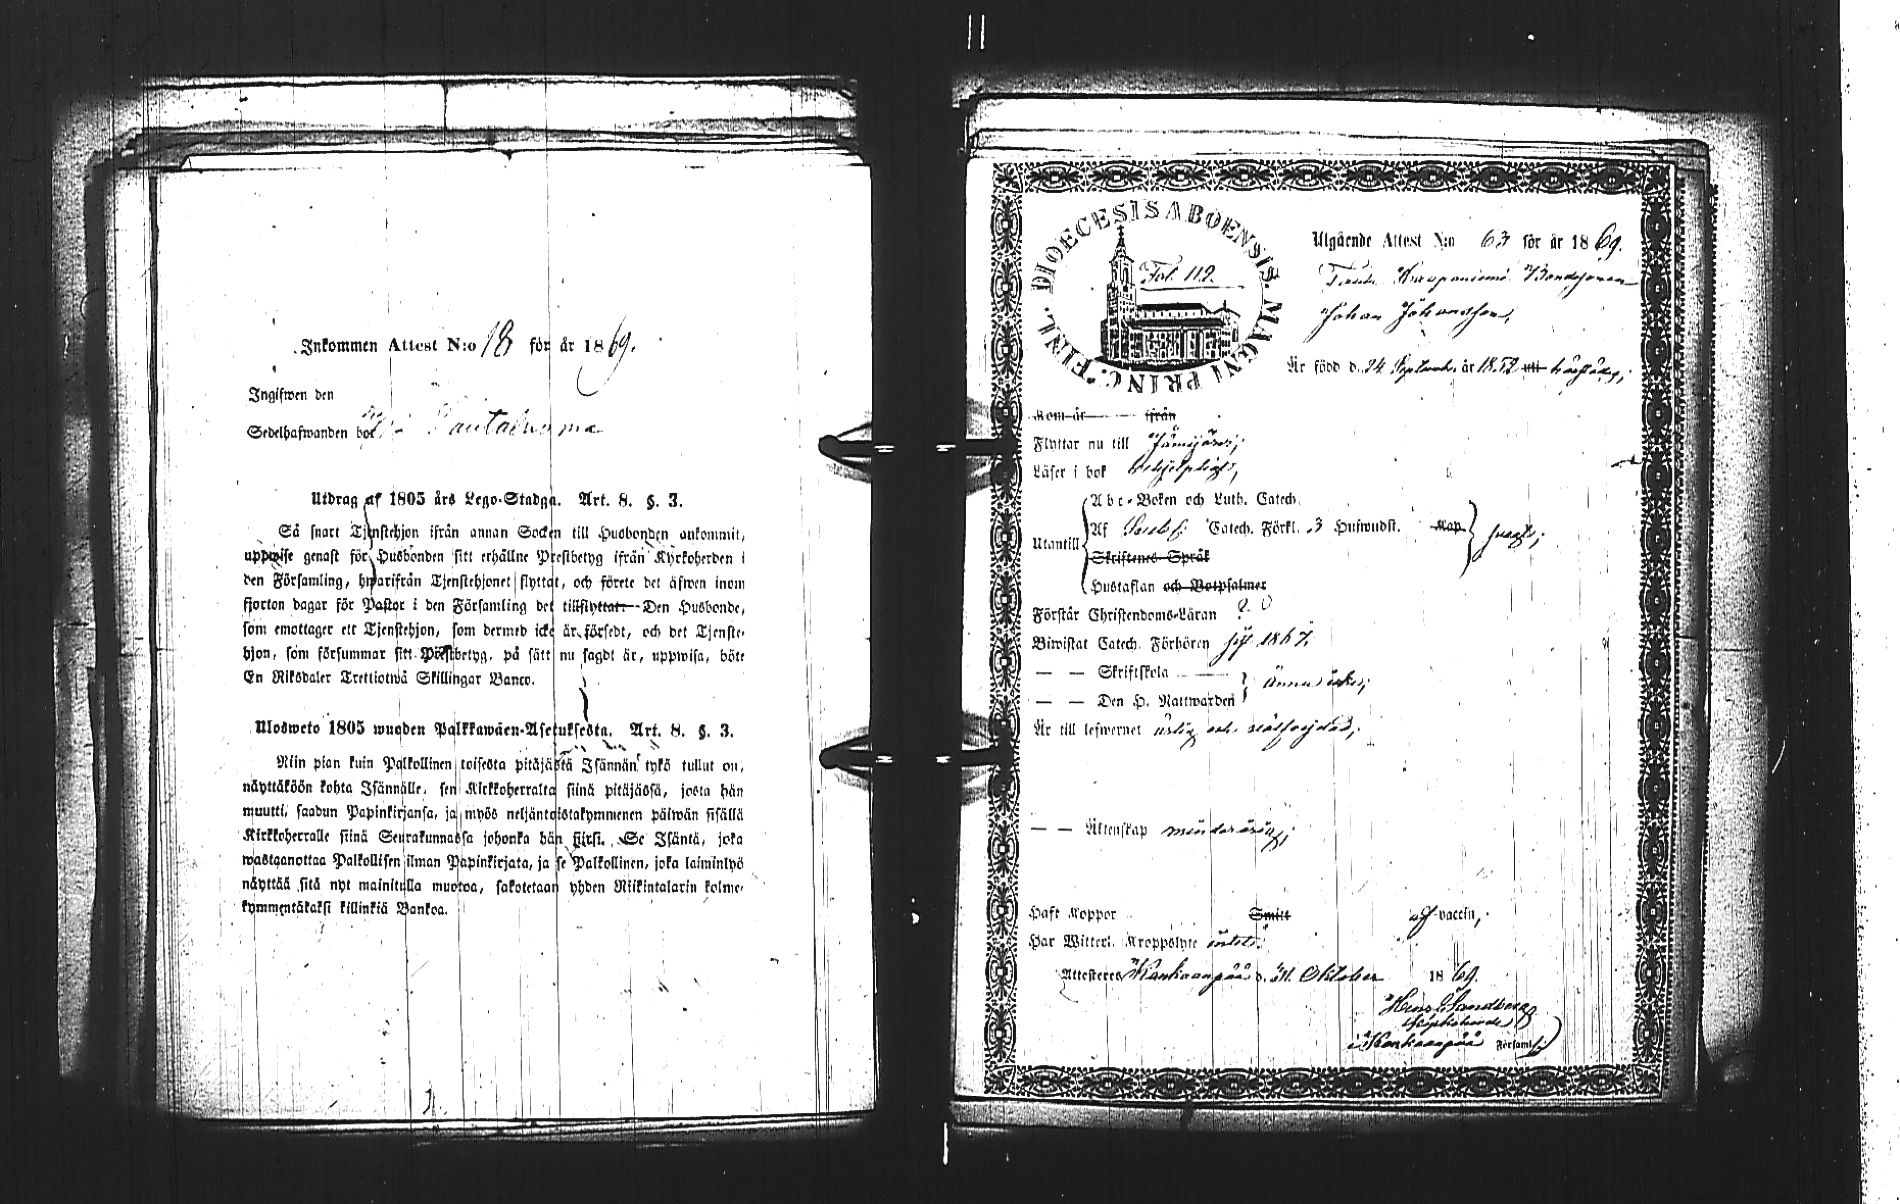 Inkommen Attest N:o 18 för år 1869.
Ingifwen den
Sedelhafwanden bor
Utdrag af 1805 års Lego-Stadga. Art. 8. §. 3.
Så snart Tjenstehjon ifrån annan Socken till Husbonden ankommit,
uppwise genast för Husbonden sitt erhållne Prestbetyg ifrån Kyrkoherden i
den Församling, hwarifrån Tjenstehjonet flyttat, och förete det äfwen inom
fjorton dagar för Pastor i den Församling det tillflyttat. Den Husbonde,
som emottager ett Tjenstehjon, som dermed icke är försedt, och det Tjenste-
hjon, som försummar sitt Prestbetyg, på sätt nu sagdt är, uppwisa, böte
En Riksdaler Trettiotwå Skillingar Banco.
Ulosweto 1805 wuoden Palkkawäen-Asetuksesta. Art. 8. §. 3.
Niin pian kuin Palkollinen toisesta pitäjästä Isännän tykö tullut on,
näyttäköön kohta Isännälle, sen Kirkkoherralta siinä pitäjässä, josta hän
muutti, saadun Papinkirjansa, ja myös neljäntoistakymmenen päiwän sisällä
Kirkkoherralle siinä Seurakunnassa johonka hän siirsi. Se Isäntä, joka
wastaanottaa Palkollisen ilman Papinkirjata, ja se Palkollinen, joka laiminlyö
näyttää sitä nyt mainitulla muotoa, sakotetaan yhden Riikintalarin kolme-
kymmentäkaksi killinkiä Bankoa.
DIOECESIS ABOENSIS. MAGNI PRINC. FINL.
Fol. 112.
Utgående Attest N:o 63 för år 1869.
Bondesonen
Johan Johansson,
Är född d. 24 September år 1852 härstädes;
Kom år ifrån
Flyttar nu till Jämijärvi;
Läser i bok
Abc-Boken och Luth. Catech.
Utantill Af Catech. Förkl. 3 Hufwudst. Kap. svagt;
Skriftenes Språk
Hustaflan och Botpsalmer
Förstår Christendoms-Läran
Biwistat Catech. Förhören 1867.
— — Skriftskola
ännu icke;
— — Den H. Nattwarden
Är till lefwernet ärlig och wälfrejdad;
— — Äktenskap minderårig;
Haft Koppor Smitt af vaccin,
Har Witterl. Kroppslyte intet.
Attesteras Kankaanpää d. 21. Oktober 1869.
Sandberg
i Kankaanpää Församl.